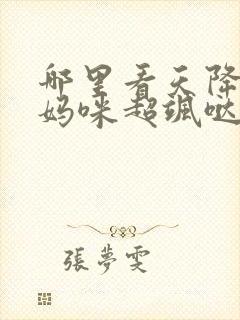 哪里看天降
妈咪超飒哒
張夢雯